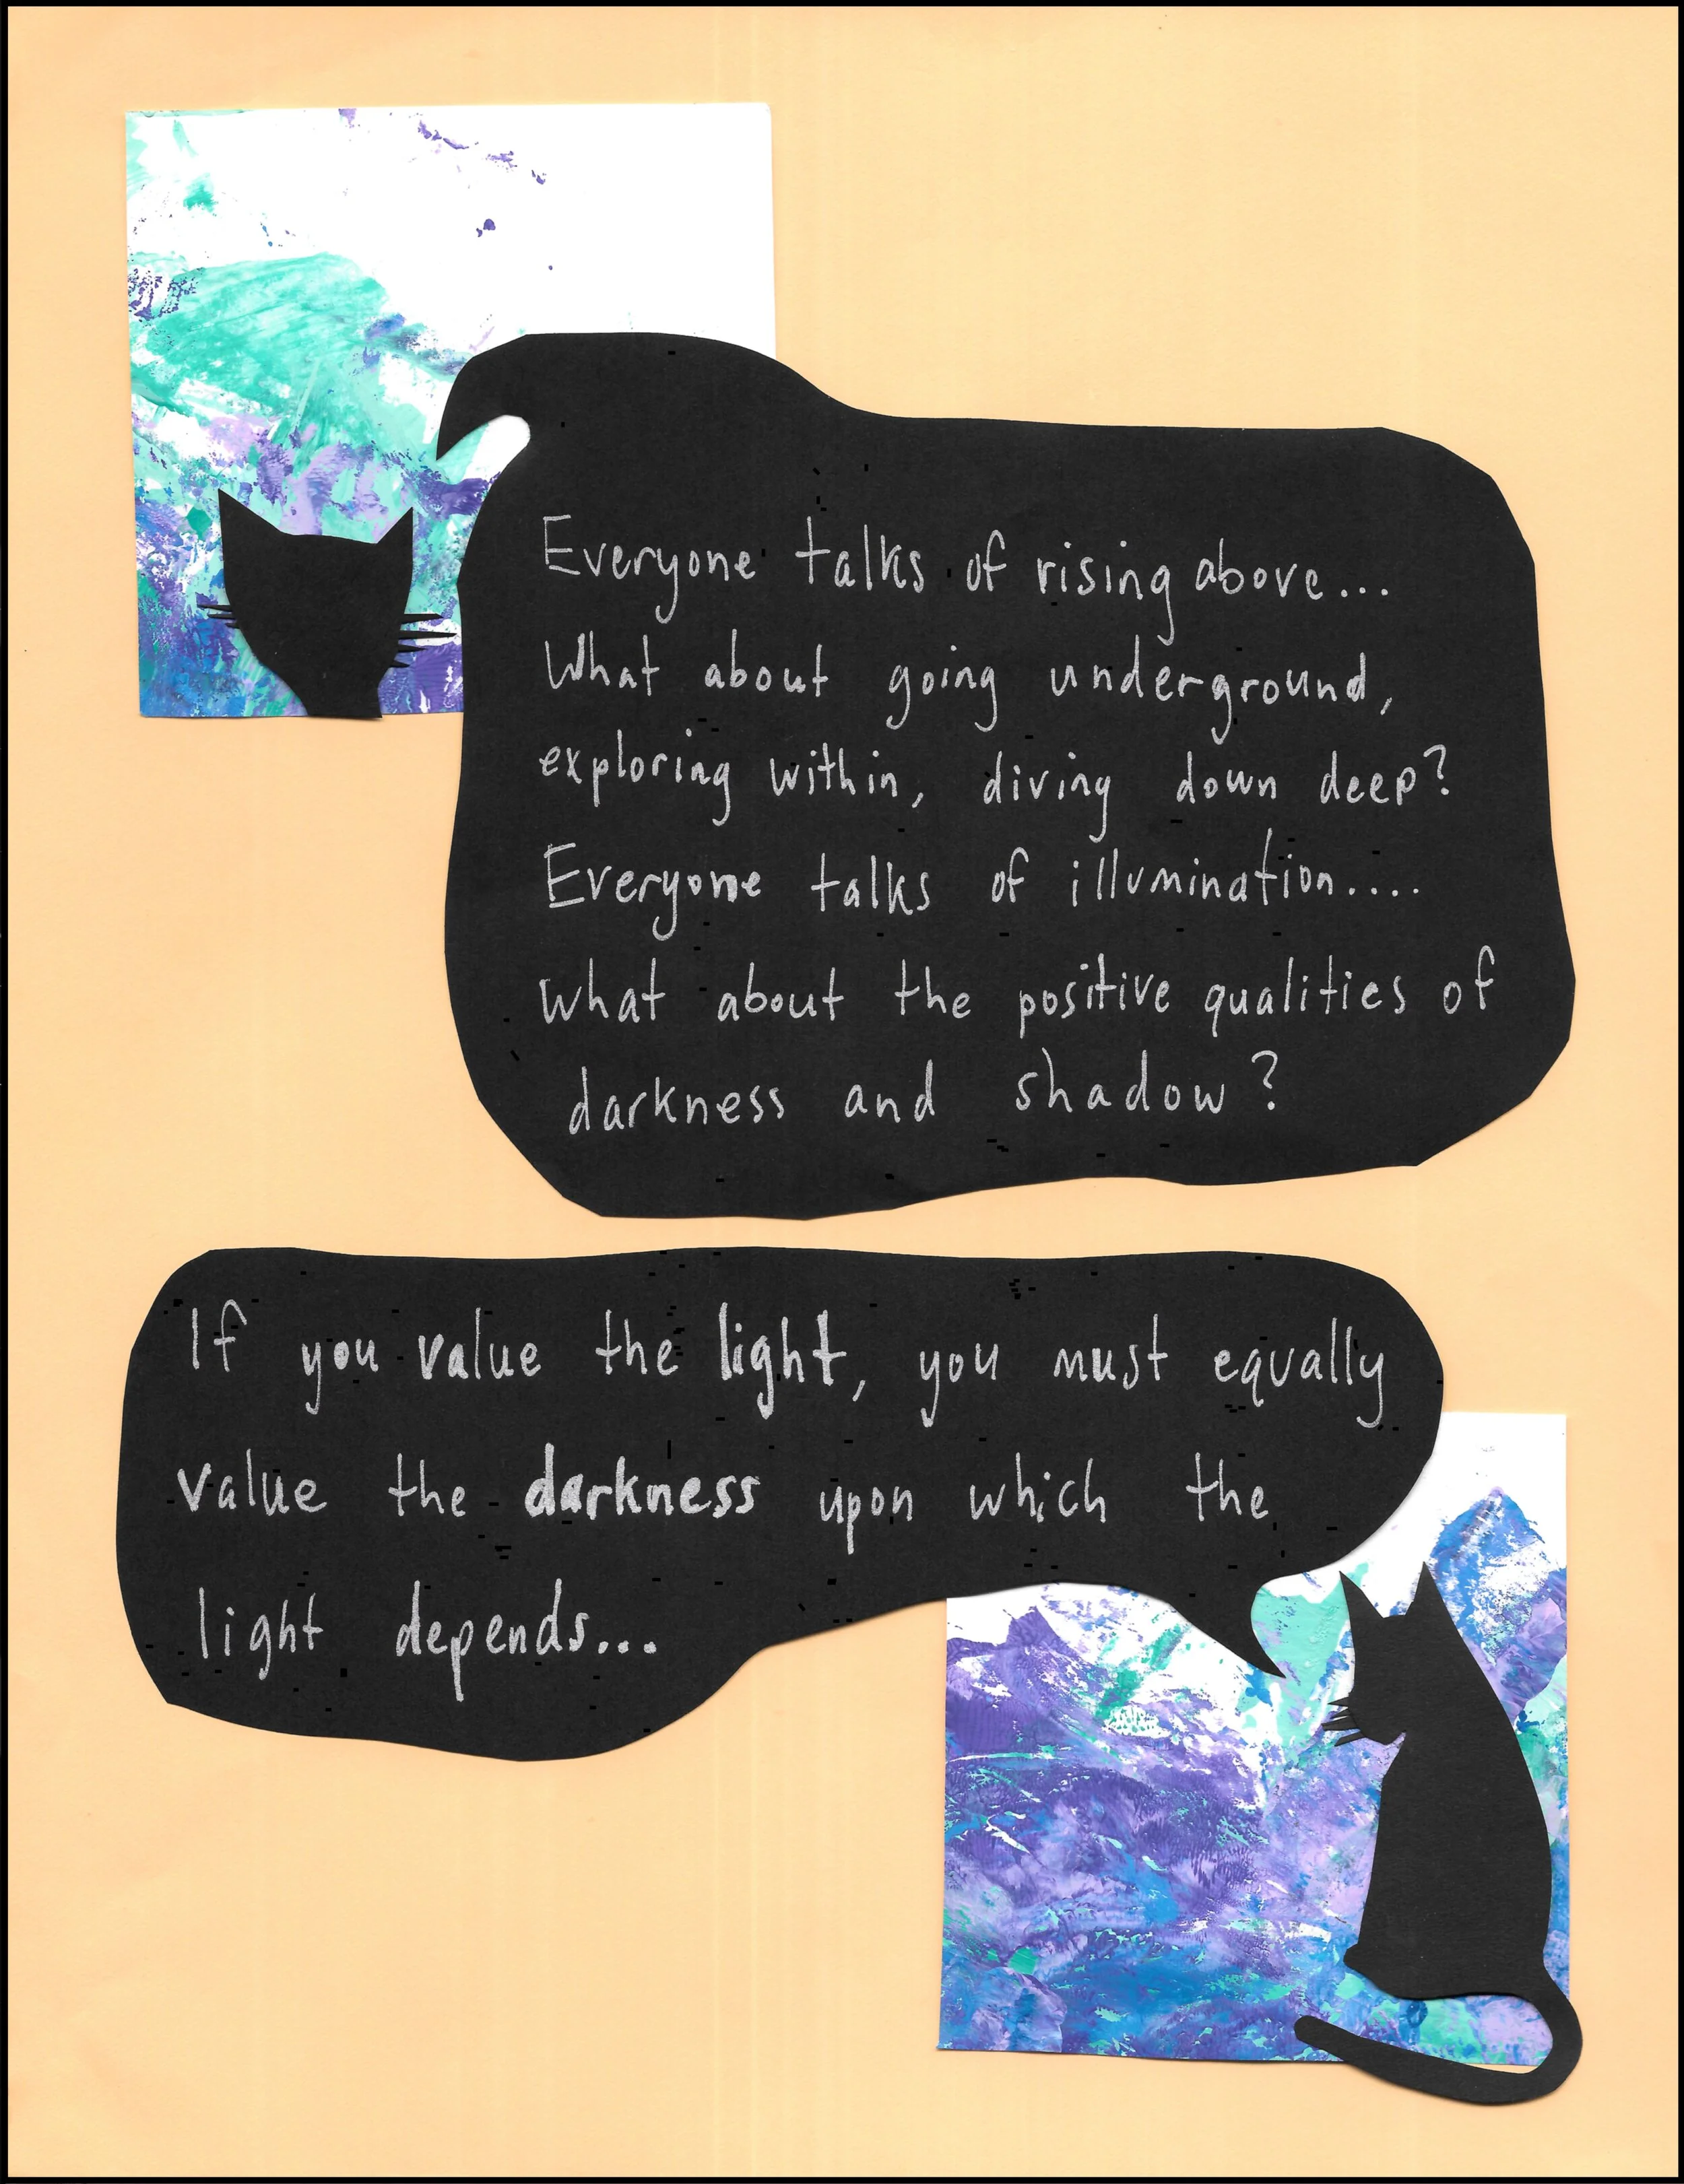 Everyone talks of rising above...
What about going underground,
exploring within, diving down deep?
Everyone talks of illumination....
what about the positive qualities of
darkness and shadow?
If you value the light, you must equally
value the darkness upon which the
light depends...